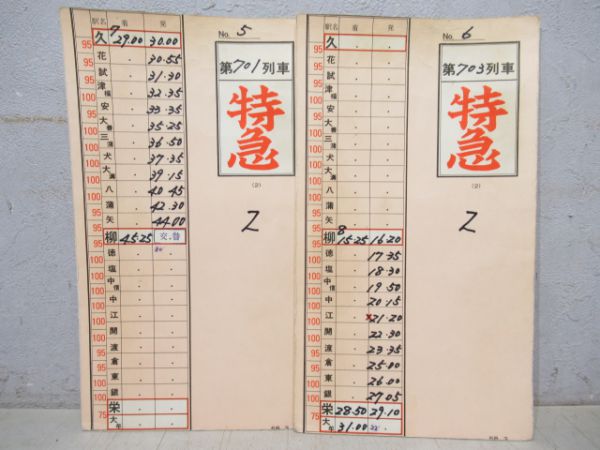 駅名 着 発
久 7 29.00 30.00
95 花 30.55
95 試 31.30
津福 32.35
95 安 33.35
100 大善 35.25
100 三潴 36.50
100 犬 37.35
100 大溝 39.15
100 八 40 45
100 蒲 42.30
矢 44.00
95 柳 45.25 交.替
95 徳
100 塩
100 中信
100 中
100 江
100 開
100 渡
100 倉
100 東
100 銀
栄
75 大牟
No. 5
第701列車
特急
(2)
Z
駅名 着 発
久
95 花
95 試
津福
95 安
100 大善
100 三潴
100 犬
100 大溝
100 八
100 蒲
矢
95 柳 8 15.25 16.20
95 徳 17.35
100 塩 18.30
100 中信 19.50
100 中 20.15
100 江 x21.20
100 開 22.30
100 渡 23.35
100 倉 25.00
100 東 26.00
100 銀 27.05
栄 28.50 29.10
75 大牟 31.00
No. 6
第703列車
特急
(2)
Z